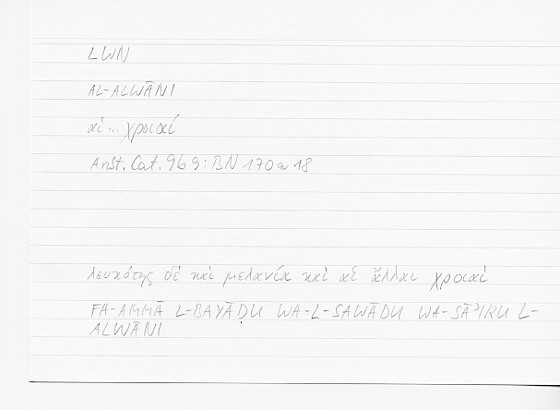 LWN
AL-ALWĀNI
αἱ... χροιαί
Arist. Cat. 9b9: BN 170a18
λευκότης δὲ καὶ μελανία καὶ αἱ ἄλλαι χροιαί
FA-AMMĀ L-BAYĀḌU WA-L-SAWĀDU WA-SĀʾIRU L-
ALWĀNI